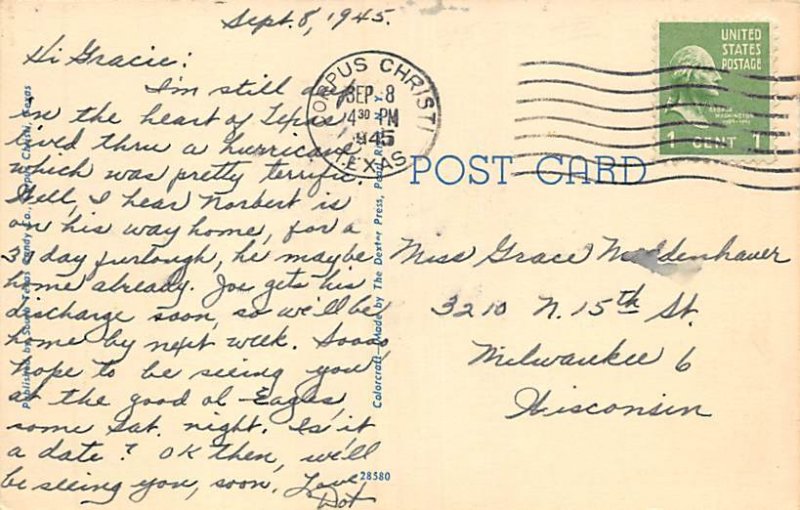 Sept. 8, 1945.
Hi Gracie:
I'm still deep
in the heart of Texas
lived thru a hurricane
which was pretty terrific.
Well, I hear Norbert is
on his way home, for a
30 day furlough, he maybe
home already. Joe gets his
discharge soon, so we'll be
home by next week. Sooo,
hope to be seeing you,
at the good ol Eagles,
some Sat. night. Is it
a date? OK then, we'll
be seeing you, soon. Love,
Dot
CORPUS CHRISTI
SEP 8
4 30 PM
1945
TEXAS
UNITED
STATES
POSTAGE
GEORGE
WASHINGTON
1 CENT 1
POST CARD
Miss Grace Moldenhauer
3210 N. 15th St.
Milwaukee 6
Wisconsin
Published by South Texas Candy Co., Corpus Christi, Texas
Colorcraft—Made by The Dexter Press, Pearl River, N.Y.
28580